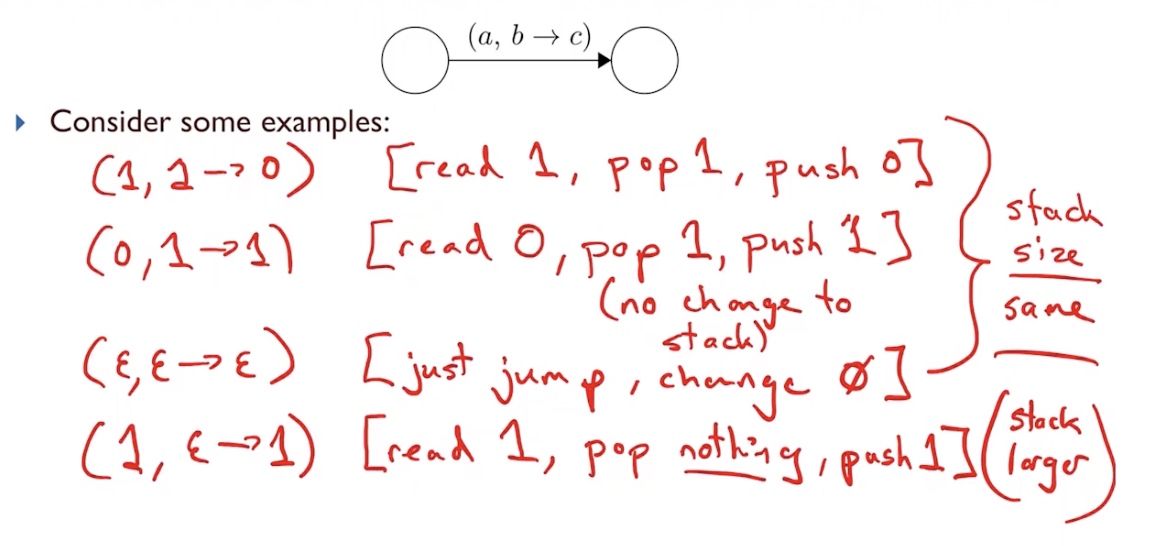 (a, b → c)
Consider some examples:
(1, 1 → 0) [read 1, pop 1, push 0]
(0, 1 → 1) [read 0, pop 1, push 1]
(no change to
stack)
(ε, ε → ε) [just jump, change ∅]
(1, ε → 1) [read 1, pop nothing, push 1]
stack
size
same
(stack
larger)